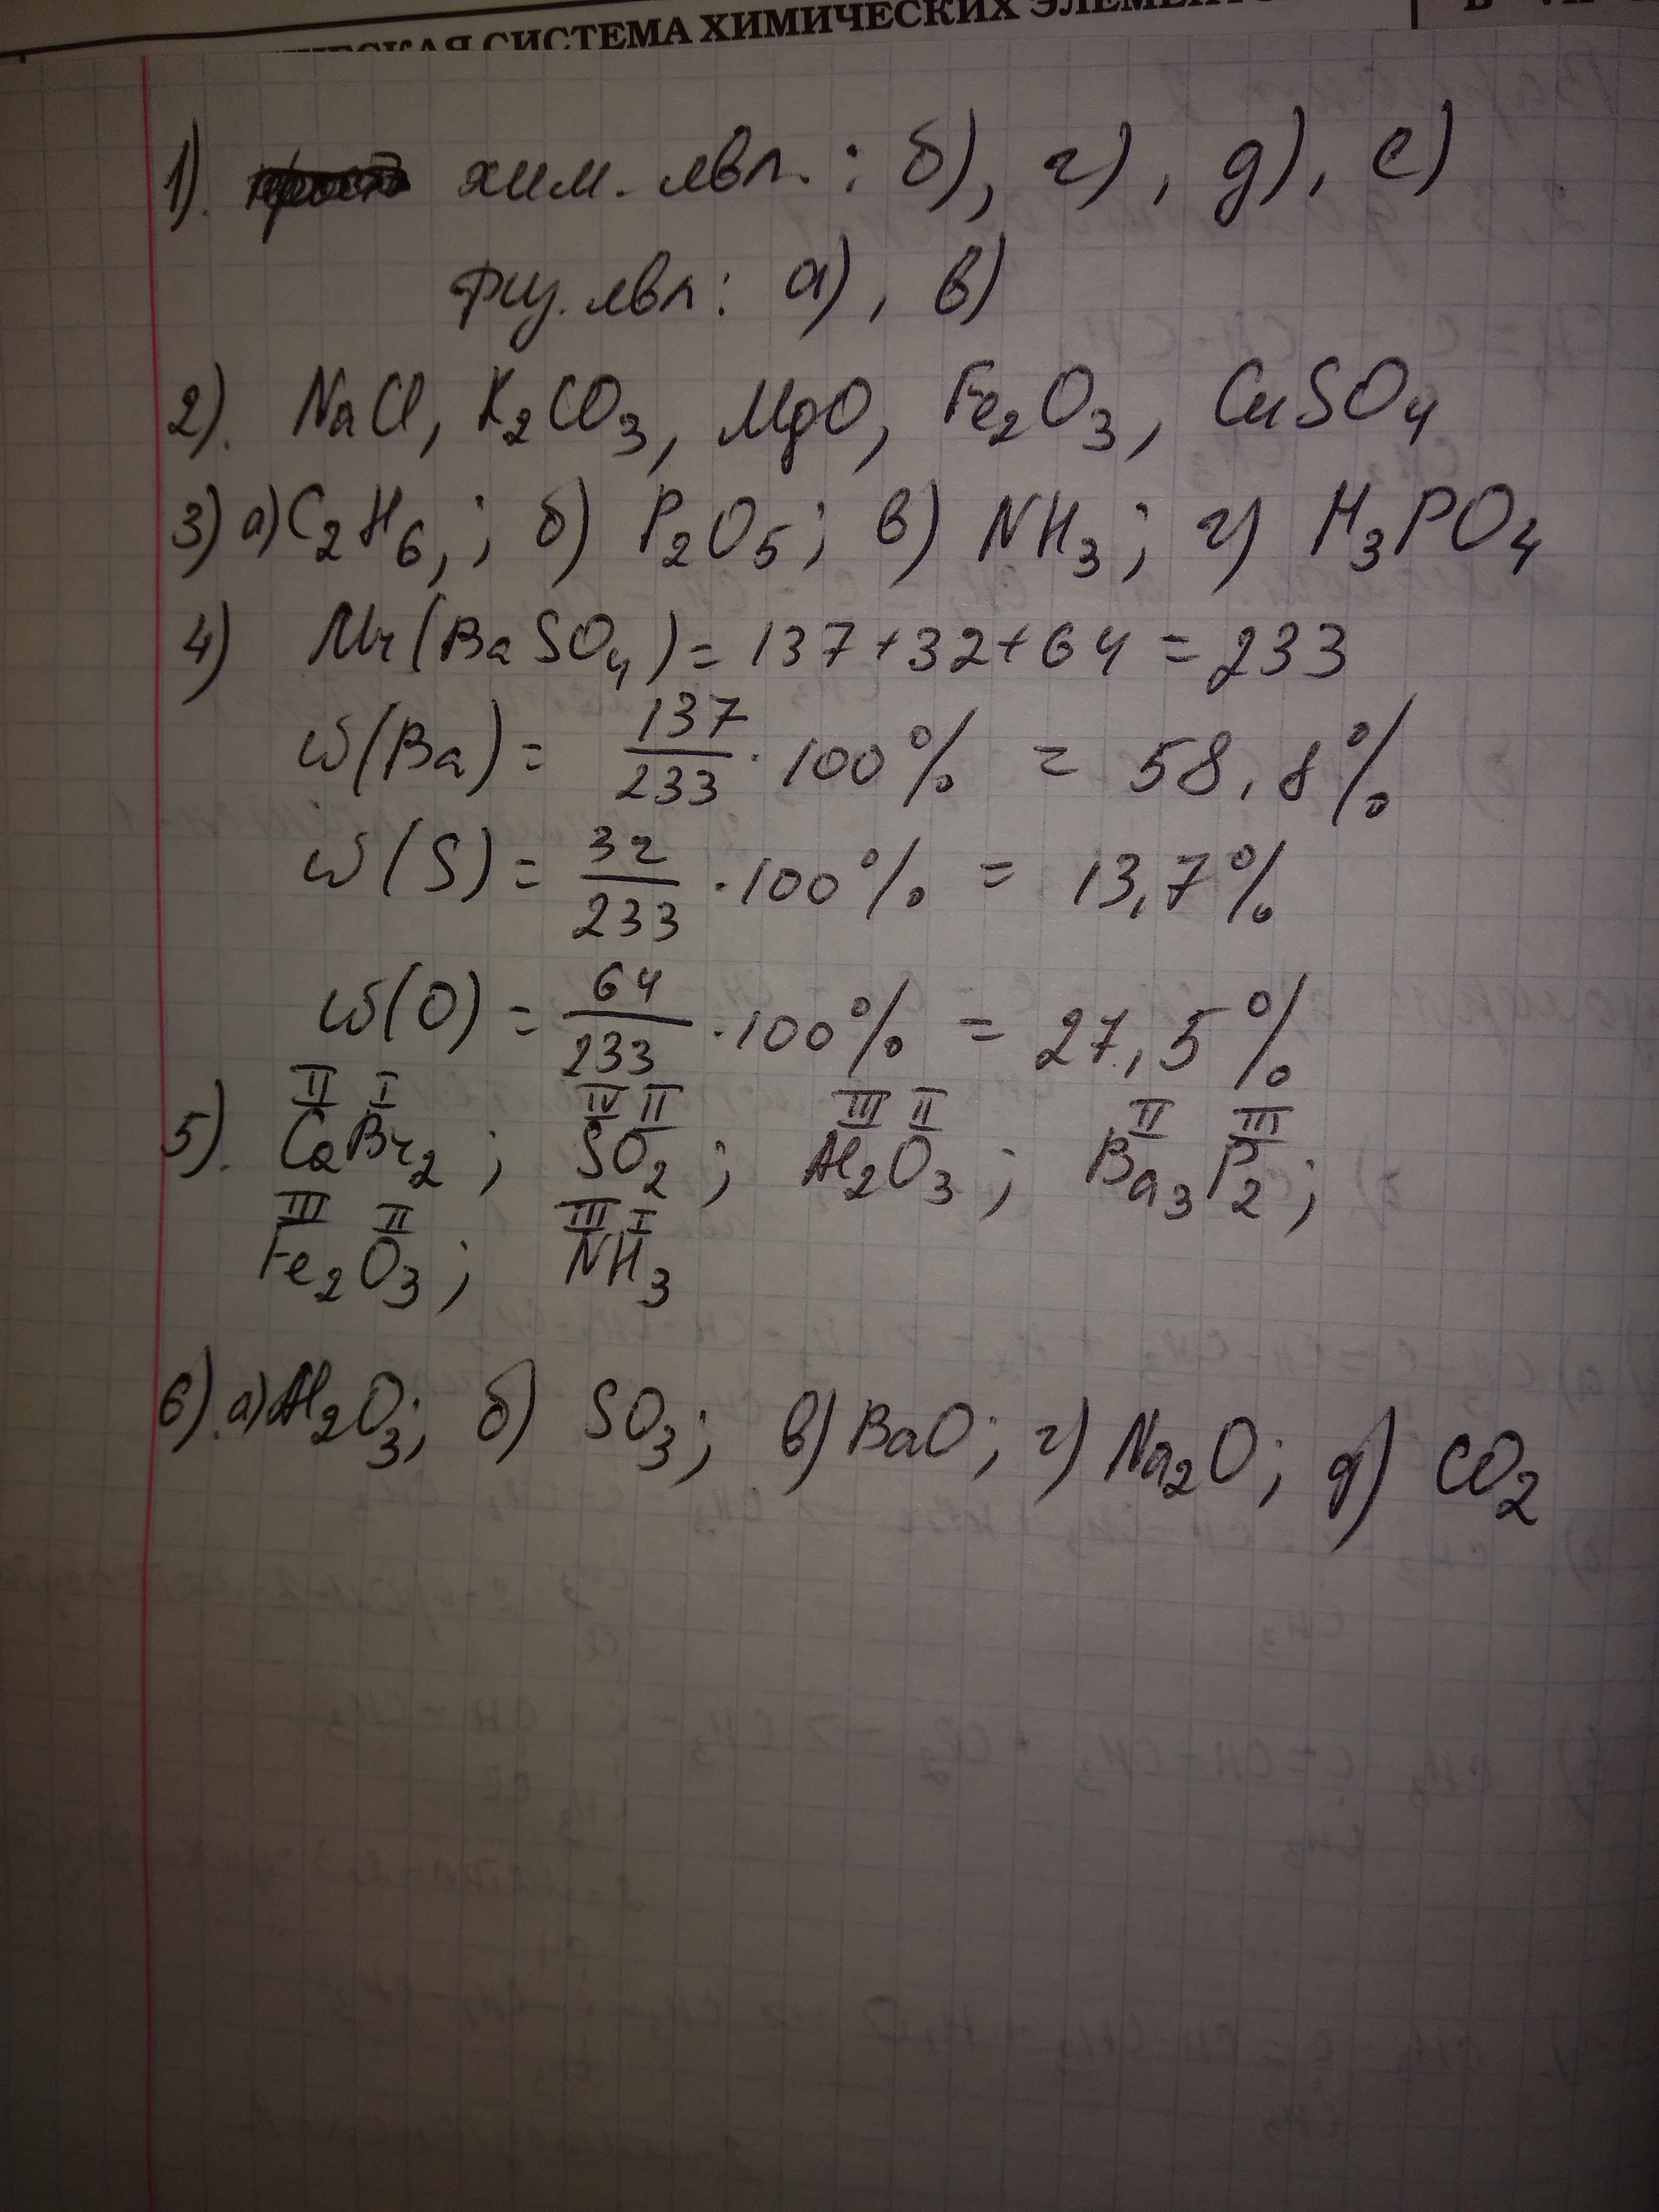 СИСТЕМА ХИМИЧЕСКИХ
1). хим. явл. : б), г), д), е)
физ. явл : а), в)
2). NaCl, K₂CO₃, MgO, Fe₂O₃, CuSO₄
3) а) C₂H₆, ; б) P₂O₅ ; в) NH₃ ; г) H₃PO₄
4) Mr(BaSO₄) = 137 + 32 + 64 = 233
ω(Ba) = 137/233 · 100% = 58,8%
ω(S) = 32/233 · 100% = 13,7%
ω(O) = 64/233 · 100% = 27,5%
II I IV II III II II III
5). CaBr₂ ; SO₂ ; Al₂O₃ ; Ba₃P₂ ;
III II III I
Fe₂O₃ ; NH₃
6). а) Al₂O₃; б) SO₃; в) BaO; г) Na₂O; д) CO₂